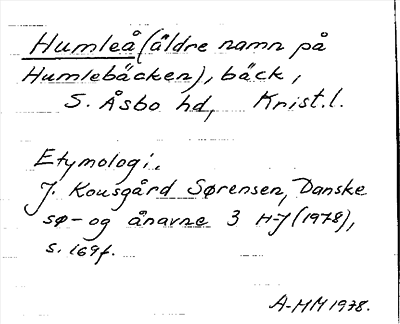 Humleå (äldre namn på
Humlebäcken), bäck,
S. Åsbo hd, Krist.l.
Etymologi.
J. Kousgård Sørensen, Danske
sø- og ånavne 3 H-J (1978),
s. 169f.
A-MM 1978.